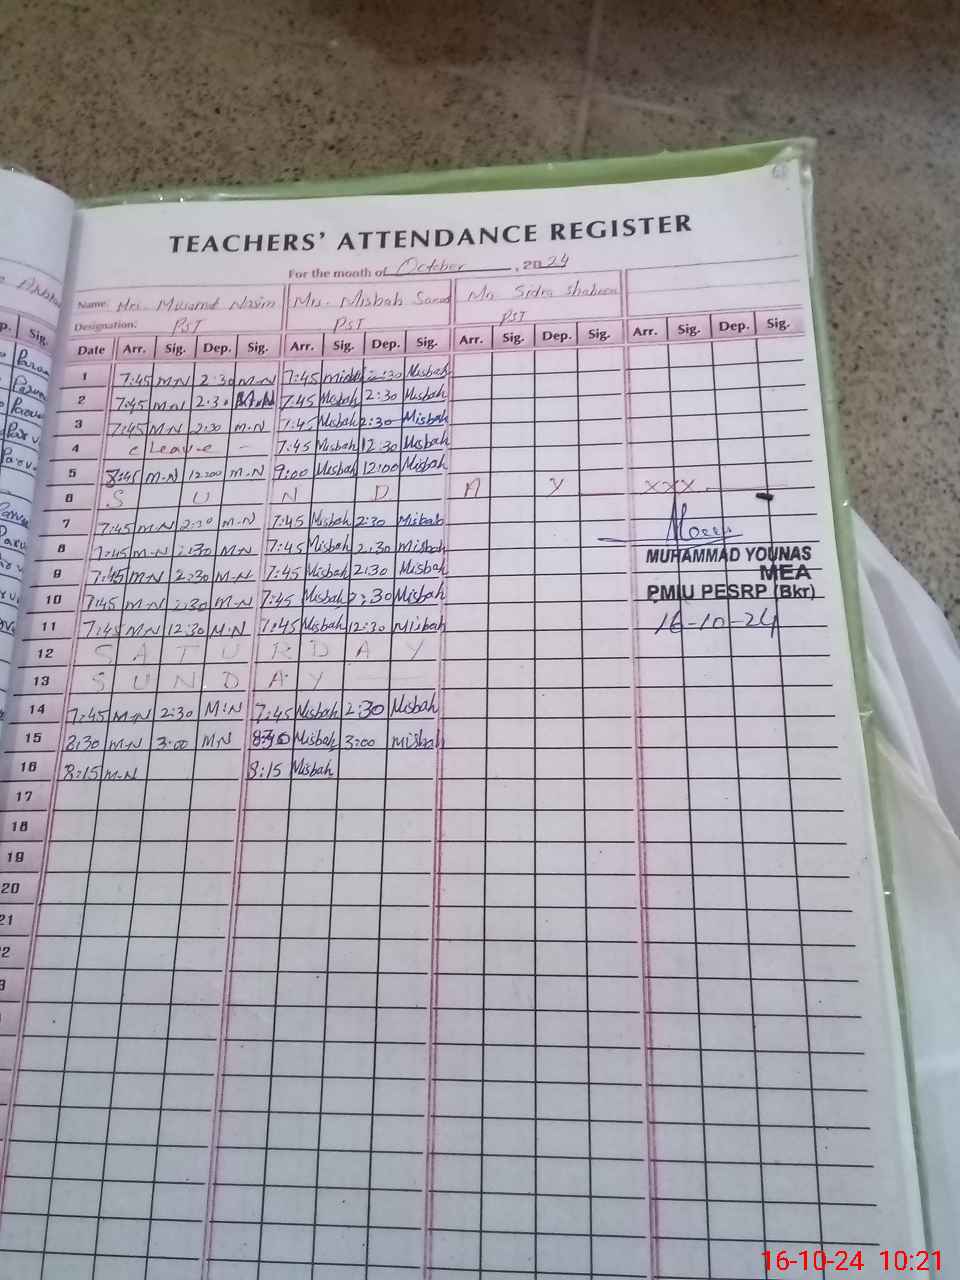 TEACHERS' ATTENDANCE REGISTER
For the month of October, 2024
Name: Mrs. Musarrat Nasim Mrs. Misbah Mrs. Sidra Shaheen
Designation: PST PST PST
Date Arr. Sig. Dep. Sig. Arr. Sig. Dep. Sig. Arr. Sig. Dep. Sig. Arr. Sig. Dep. Sig.
p. Sig.
1 7:45 M-N 2:30 M-N 7:45 Misbah 2:30 Misbah
2 7:45 M-N 2:30 M-N 7:45 Misbah 2:30 Misbah
3 7:45 M-N 2:30 M-N 7:45 Misbah 2:30 Misbah
4 c Leave - 7:45 Misbah 12:30 Misbah
5 8:45 M-N 12:00 M-N 9:00 Misbah 12:00 Misbah
6 S U N D A Y XXX
7 7:45 M-N 2:30 M-N 7:45 Misbah 2:30 Misbah
8 7:45 M-N 2:30 M-N 7:45 Misbah 2:30 Misbah
MUHAMMAD YOUNAS
9 7:45 M-N 2:30 M-N 7:45 Misbah 2:30 Misbah
MEA
10 7:45 M-N 2:30 M-N 7:45 Misbah 2:30 Misbah
PMIU PESRP (Bkr)
11 7:45 M-N 12:30 M-N 7:45 Misbah 12:30 Misbah
16-10-24
12 S A T U R D A Y
13 S U N D A Y
14 7:45 M-N 2:30 M-N 7:45 Misbah 2:30 Misbah
15 8:30 M-N 3:00 M-N 8:30 Misbah 3:00 Misbah
16 8:15 M-N 8:15 Misbah
17
18
19
20
21
16-10-24 10:21